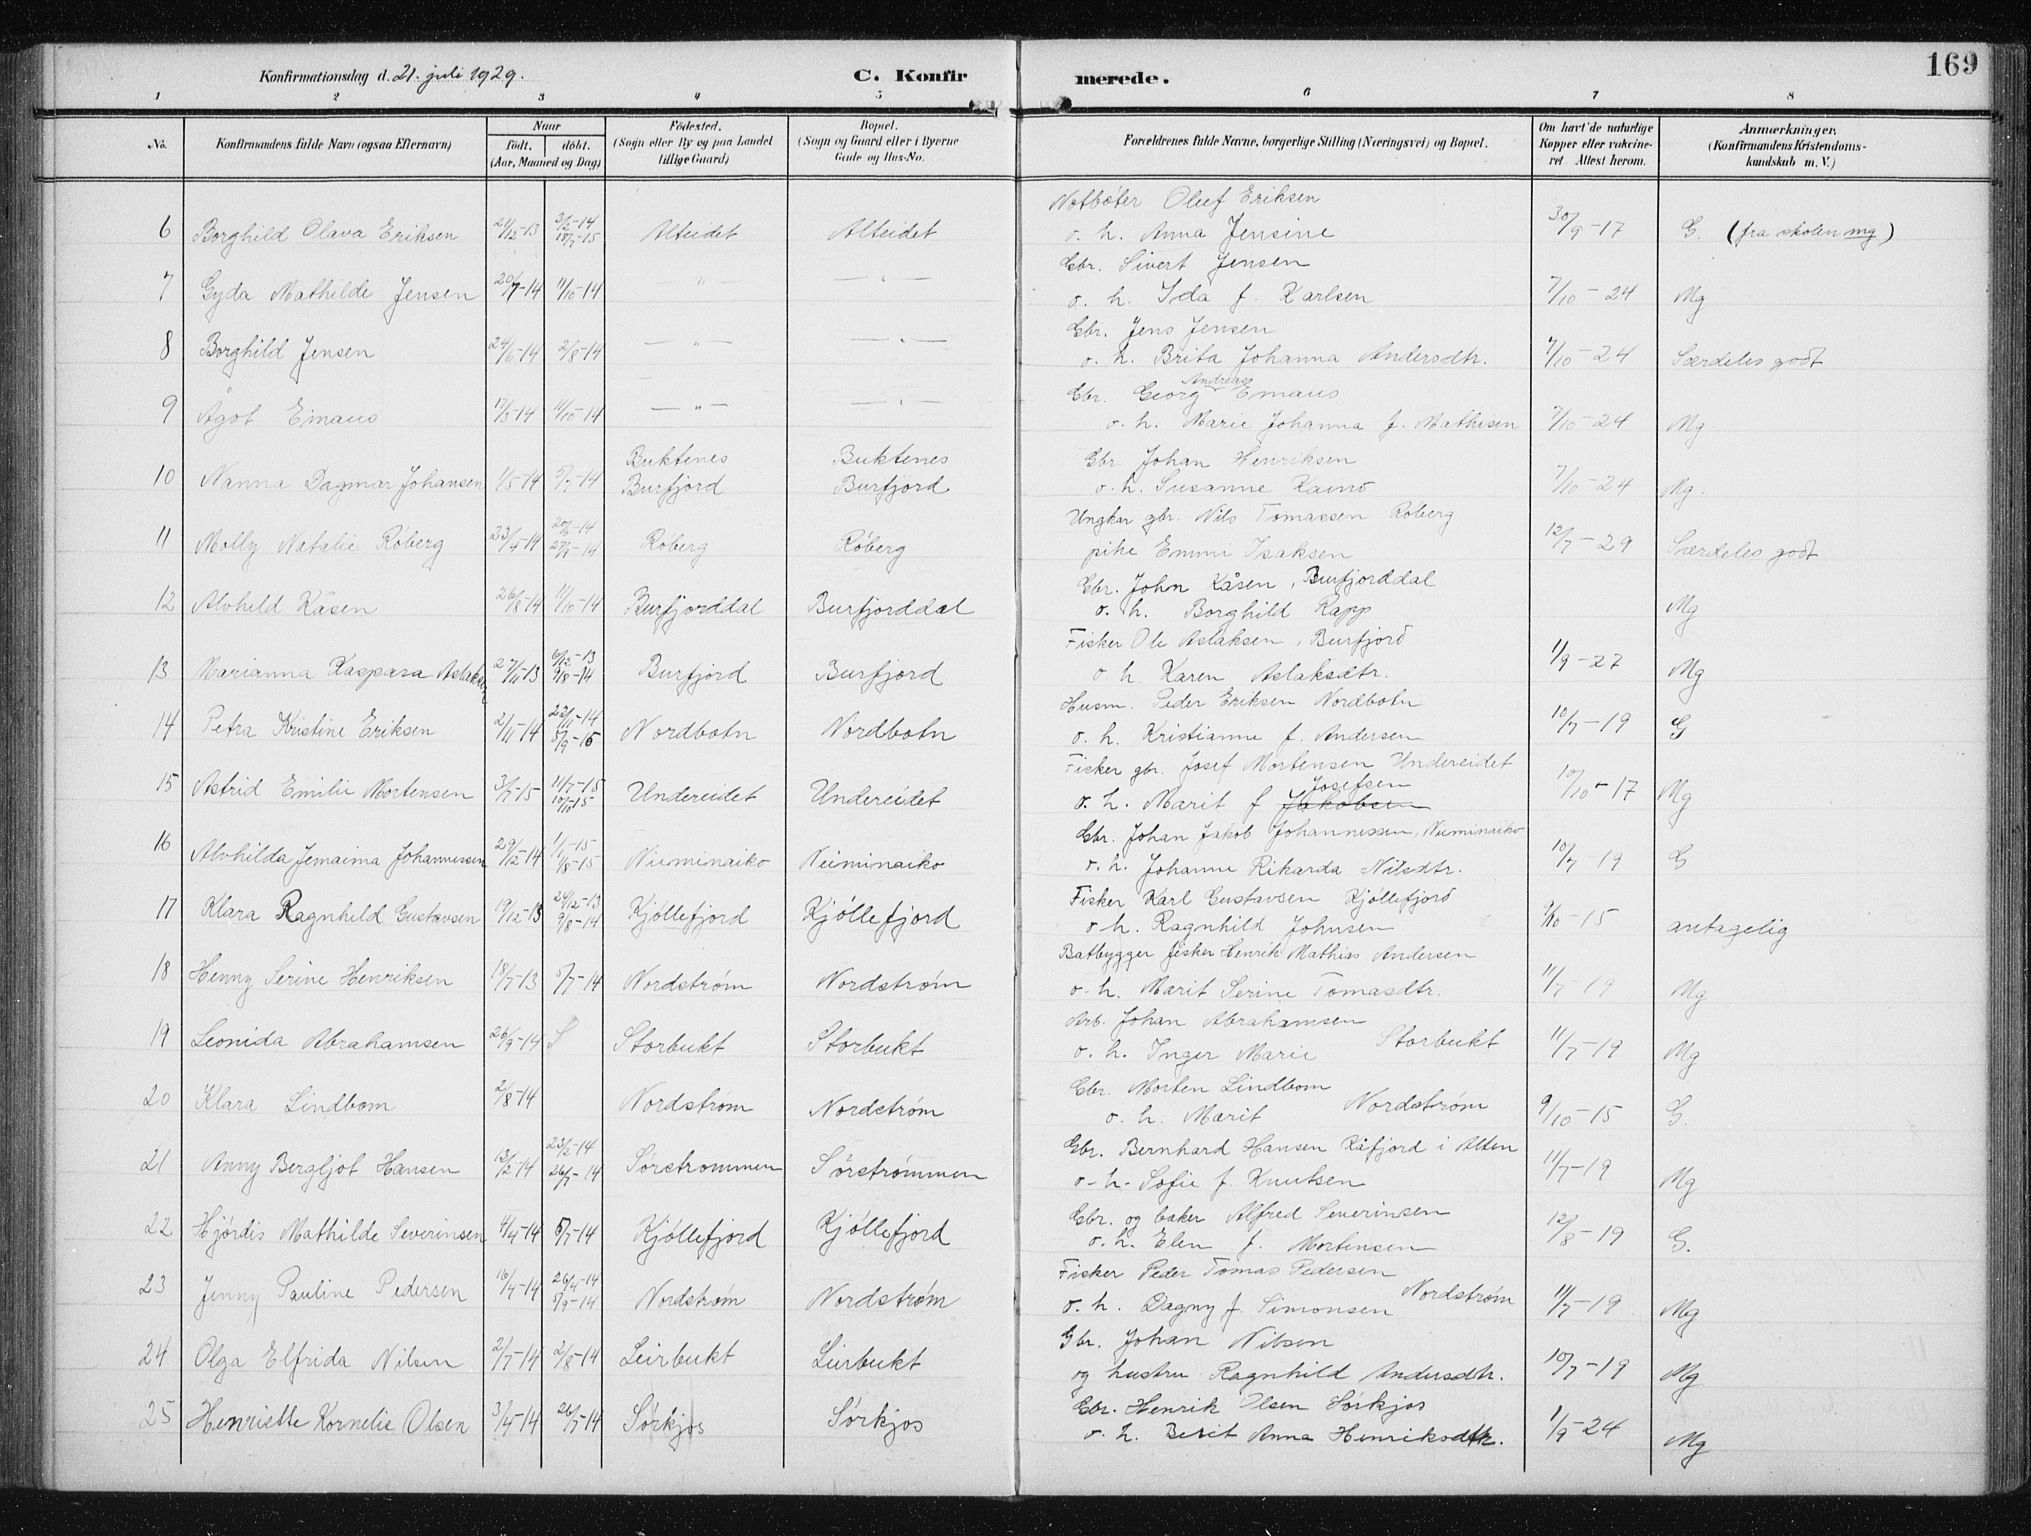 169
Konfirmationsdag d. 21. juli 1929. C. Konfirmerede.
1 2 3 4 5 6 7 8
No. Konfirmandens fulde Navn (ogsaa Efternavn) Naar født. døbt. (Aar, Maaned og Dag) Fødested. (Sogn eller By og paa Landet tillige Gaard) Bopæl. (Sogn og Gaard eller i Byerne Gade og Hus-No. Forældrenes fulde Navne, borgerlige Stilling (Næringsvei) og Bopæl. Om havt de naturlige Kopper eller vakcineret Attest herom. Anmærkninger. (Konfirmandens Kristendomskundskab m. V.)
Notbøter Oluf Eriksen
6 Borghild Olava Eriksen 21/12-13 2/2-14 18/7-15 Alteidet Alteidet o. h. Anna Jensine 30/9-17 G. (fra skolen mg)
Gbr. Sivert Jensen
7 Gyda Mathilde Jensen 20/7-14 11/10-14 — " — — " — o. h. Ida f. Karlsen 7/10-24 Mg
Gbr. Jens Jensen
8 Borghild Jensen 24/6-14 2/8-14 — " — — " — o. h. Brita Johanna Andersdtr. 7/10-24 Særdeles godt
Gbr. Georg Andreas Emaus
9 Ågot Emaus 17/3-14 11/10-14 — " — — " — o. h. Marie Johanna f. Mathisen 7/10-24 Mg.
Buktenes Buktenes Gbr. Johan Henriksen
10 Nanna Dagmar Johansen 1/5-14 5/7-14 Burfjord Burfjord o. h. Susanne Kaino 7/10-24 Mg.
Ungkar gbr. Nils Tomassen Røberg
11 Molly Natalie Røberg 23/4-14 27/9-14 Røberg Røberg pike Emmi Isaksen 12/7-29 Særdeles godt
Gbr. John Kåsen, Burfjorddal
12 Alvhild Kåsen 26/8-14 11/10-14 Burfjorddal Burfjorddal o. h. Borghild Rapp Mg
Fisker Ole Aslaksen, Burfjord
13 Marianna Kaspara Aslaksen 27/11-13 6/12-13 9/8-14 Burfjord Burfjord o. h. Karen Aslaksdtr. 1/9-27 Mg
Husm. Peder Eriksen Nordbotn
14 Petra Kristine Eriksen 2/11-14 22/11-14 5/9-15 Nordbotn Nordbotn o. h. Kristianne f. Andersen 10/7-19 G
Fisker gbr. Josef Mortensen Undereidet
15 Astrid Emilie Mortensen 3/7-15 11/7-15 10/10-15 Undereidet Undereidet o. h. Marit f Jakobsen Josefsen 10/10-17 Mg
Gbr. Johan Jakob Johannessen, Nieminaiko
16 Alvhilda Jemaima Johannessen 29/12-14 1/1-15 1/8-15 Nieminaiko Nieminaiko o. h. Johanne Rikarda Nilsdtr. 10/7-19 G
Fisker Karl Gustavsen Kjøllefjord
17 Klara Ragnhild Gustavsen 19/12-13 24/12-13 9/8-14 Kjøllefjord Kjøllefjord o. h. Ragnhild Johnsen 9/10-15 antagelig
Båtbygger fisker Henrik Mathias Andersen
18 Henny Serine Henriksen 18/7-13 5/7-14 Nordstrøm Nordstrøm o. h. Marit Serine Tomasdtr. 11/7-19 Mg
Arb. Johan Abrahamsen
19 Leonida Abrahamsen 26/9-14 Storbukt Storbukt o. h. Inger Marie Storbukt 11/7-19 Mg
Gbr. Morten Lindbom
20 Klara Lindbom 2/8-14 Nordstrøm Nordstrøm o. h. Marit Nordstrøm 9/10-15 G.
Gbr. Bernhard Hansen Kåfjord i Alten
21 Anny Bergljot Hansen 12/2-14 23/2-14 26/7-14 Sørstrømmen Sørstrømmen o. h. Sofie f. Knutsen 11/7-19 Mg
Gbr. og baker Alfred Severinsen
22 Hjørdis Mathilde Severinsen 4/4-14 5/7-14 Kjøllefjord Kjøllefjord o. h. Elen f. Mortensen 12/8-19 G.
Fisker Peder Tomas Pedersen
23 Jenny Pauline Pedersen 16/4-14 26/4-14 5/9-14 Nordstrøm Nordstrøm o. h. Dagny f. Simonsen Nordstrøm 11/7-19 Mg
Gbr. Johan Nilsen
24 Olga Elfrida Nilsen 2/7-14 2/8-14 Leirbukt Leirbukt og hustru Ragnhild Andersdtr. 10/7-19 Mg
Gbr. Henrik Olsen Sørkjos
25 Henriette Kornelie Olsen 3/4-14 26/7-14 Sørkjos Sørkjos o. h. Berit Anna Henriksdtr. 1/9-24 Mg